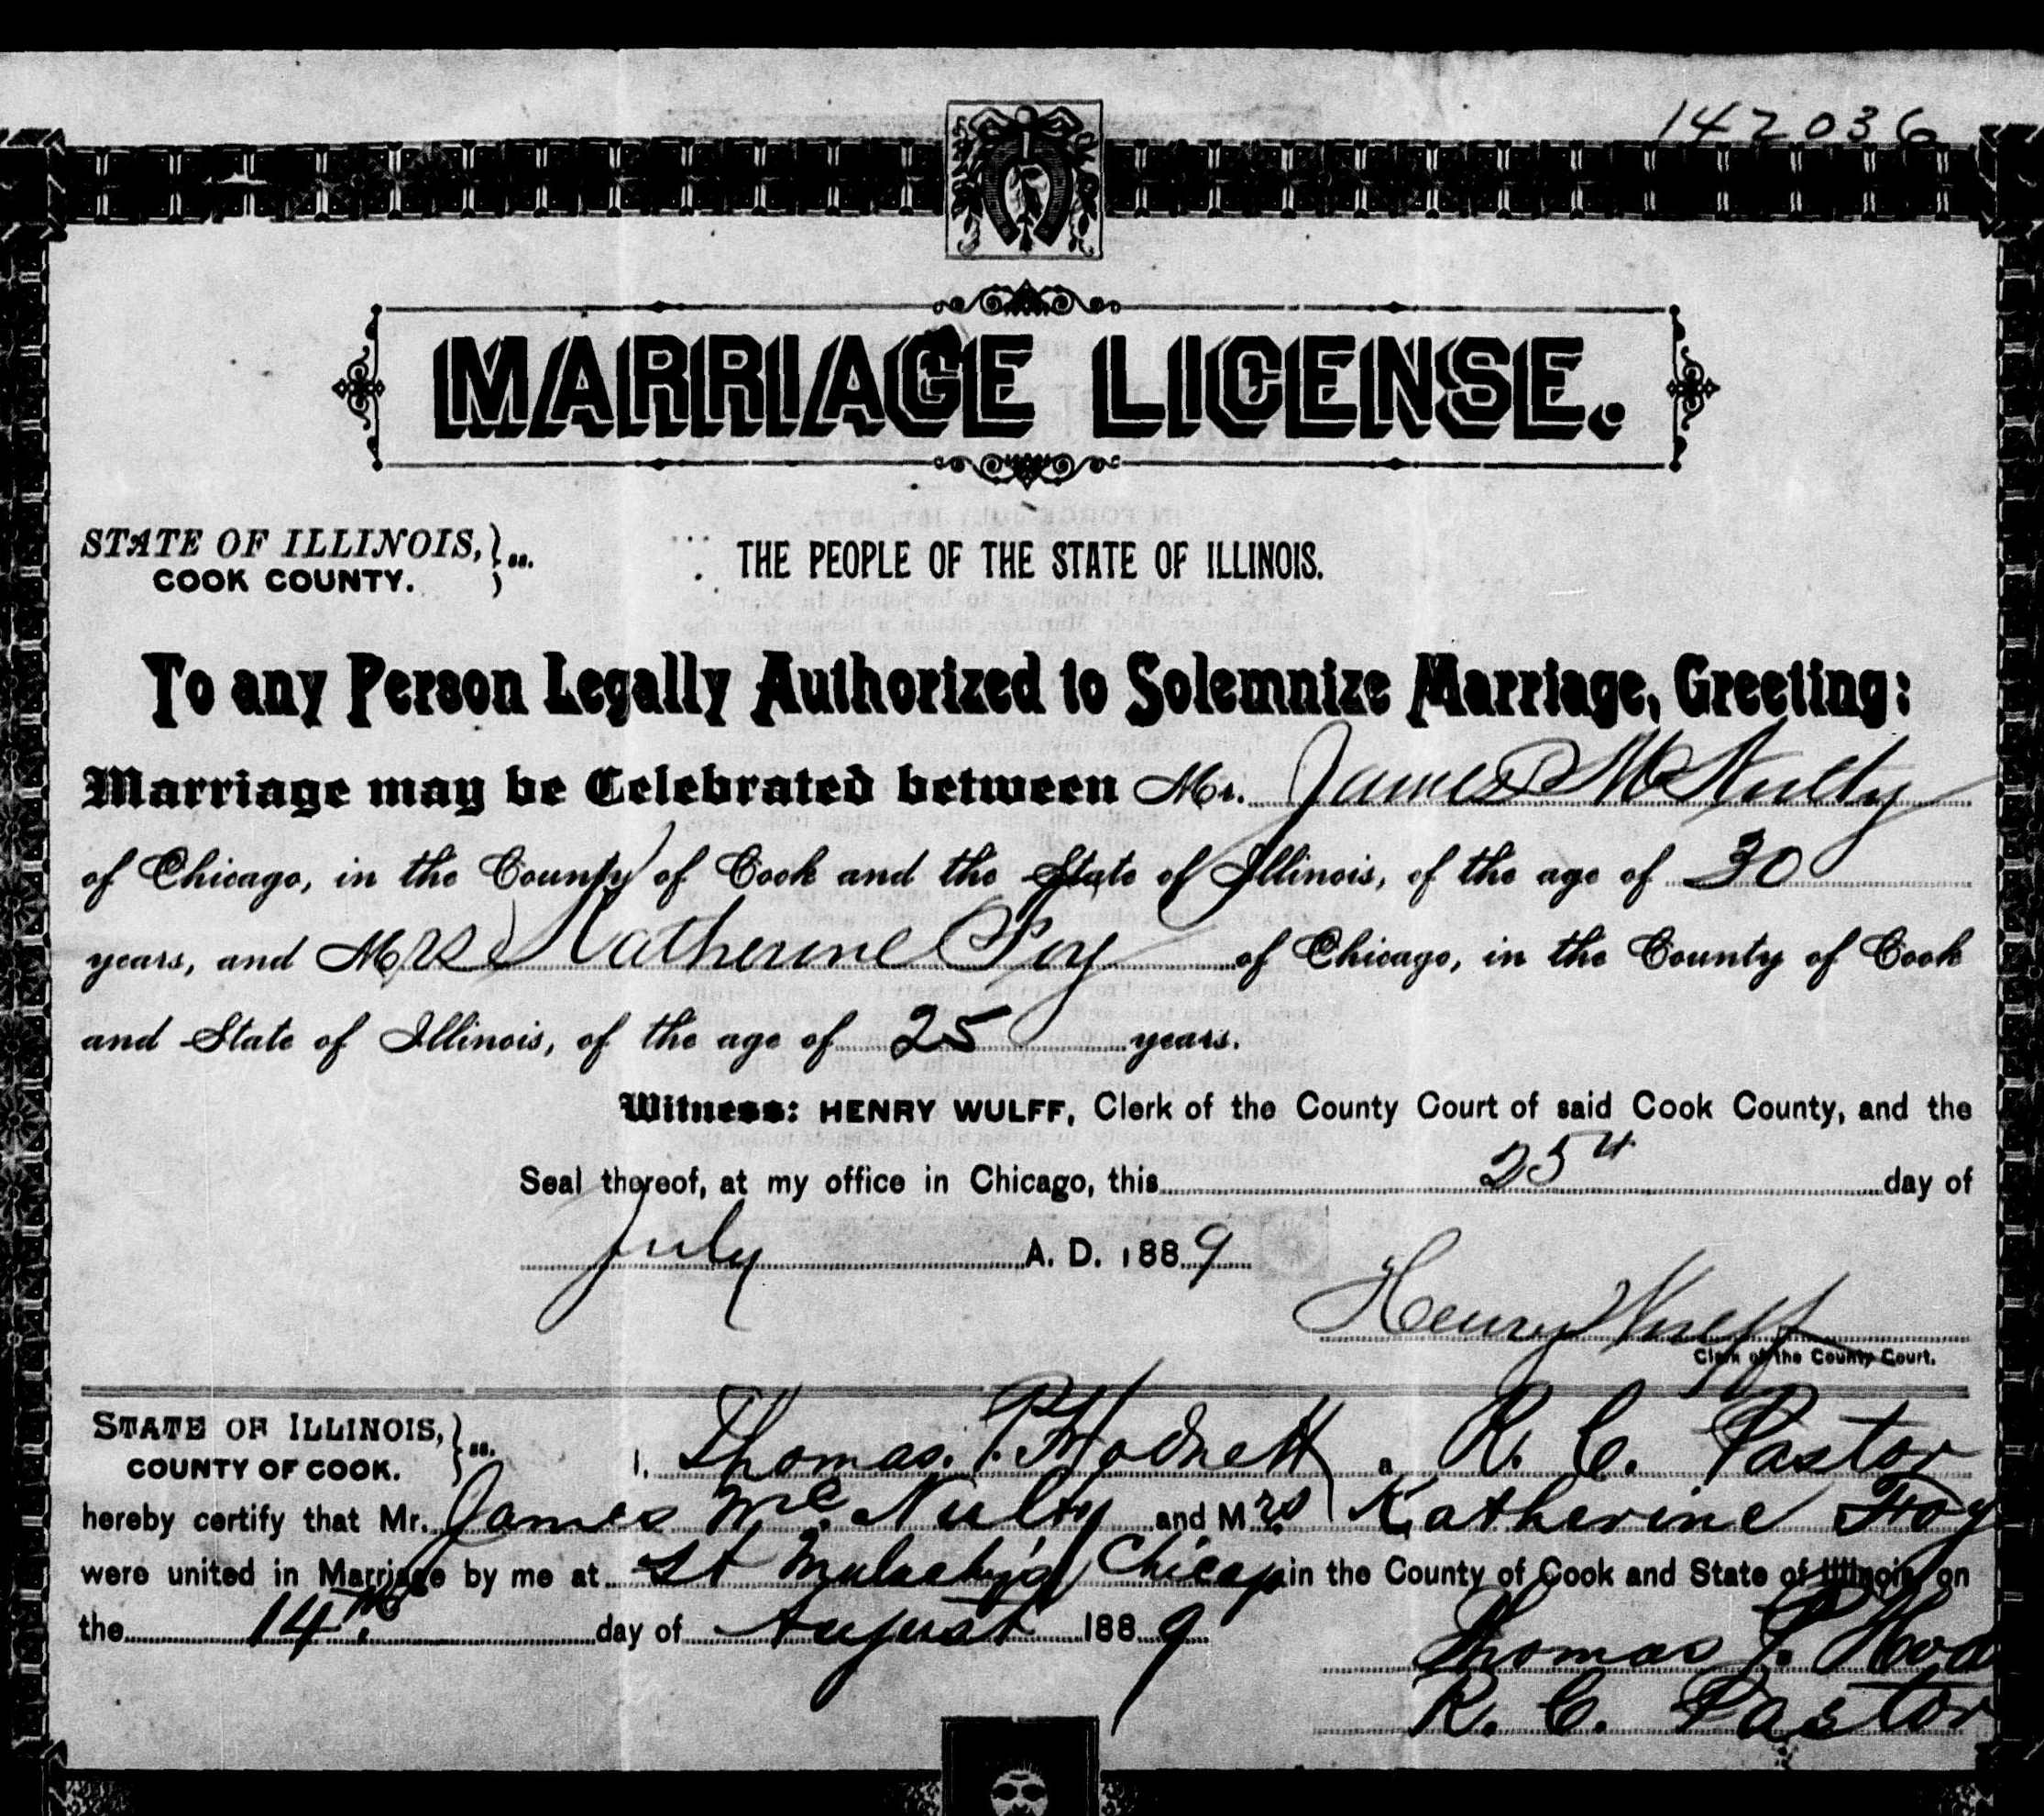 142036
MARRIAGE LICENSE.
STATE OF ILLINOIS, } ss.
COOK COUNTY.
THE PEOPLE OF THE STATE OF ILLINOIS.
To any Person Legally Authorized to Solemnize Marriage, Greeting:
Marriage may be Celebrated between Mr. James McNulty
of Chicago, in the County of Cook and the State of Illinois, of the age of 30
years, and Mrs Katherine Foy of Chicago, in the County of Cook
and State of Illinois, of the age of 25 years.
Witness: HENRY WULFF, Clerk of the County Court of said Cook County, and the
Seal thereof, at my office in Chicago, this 25th day of
July A. D. 1889
Henry Wulff
Clerk of the County Court.
STATE OF ILLINOIS, } ss.
COUNTY OF COOK.
I, Thomas P. Hodnett a R. C. Pastor
hereby certify that Mr. James McNulty and Mrs Katherine Foy
were united in Marriage by me at St Malachy's Chicago in the County of Cook and State of Illinois, on
the 14th day of August 1889
Thomas P. Hod
R. C. Pastor